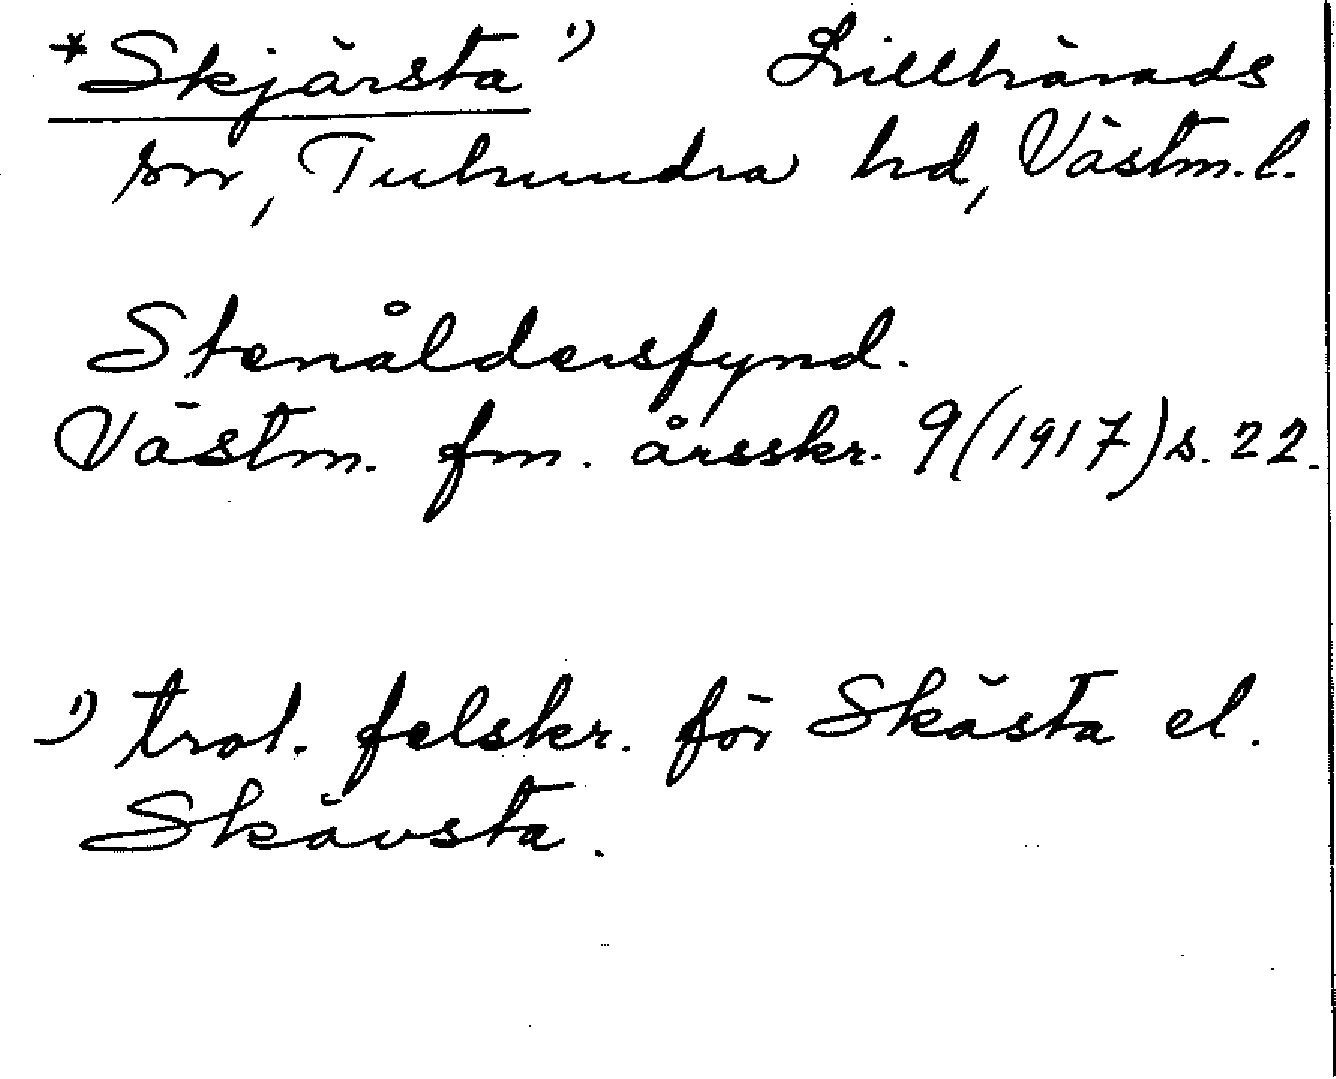 *Skjärsta ¹) Lillhärads
sn, Tuhundra hd, Västm. l.
Stenåldersfynd.
Västm. fm. årsskr. 9 (1917) s. 22.
¹) trol. felskr. för Skästa el.
Skävsta.